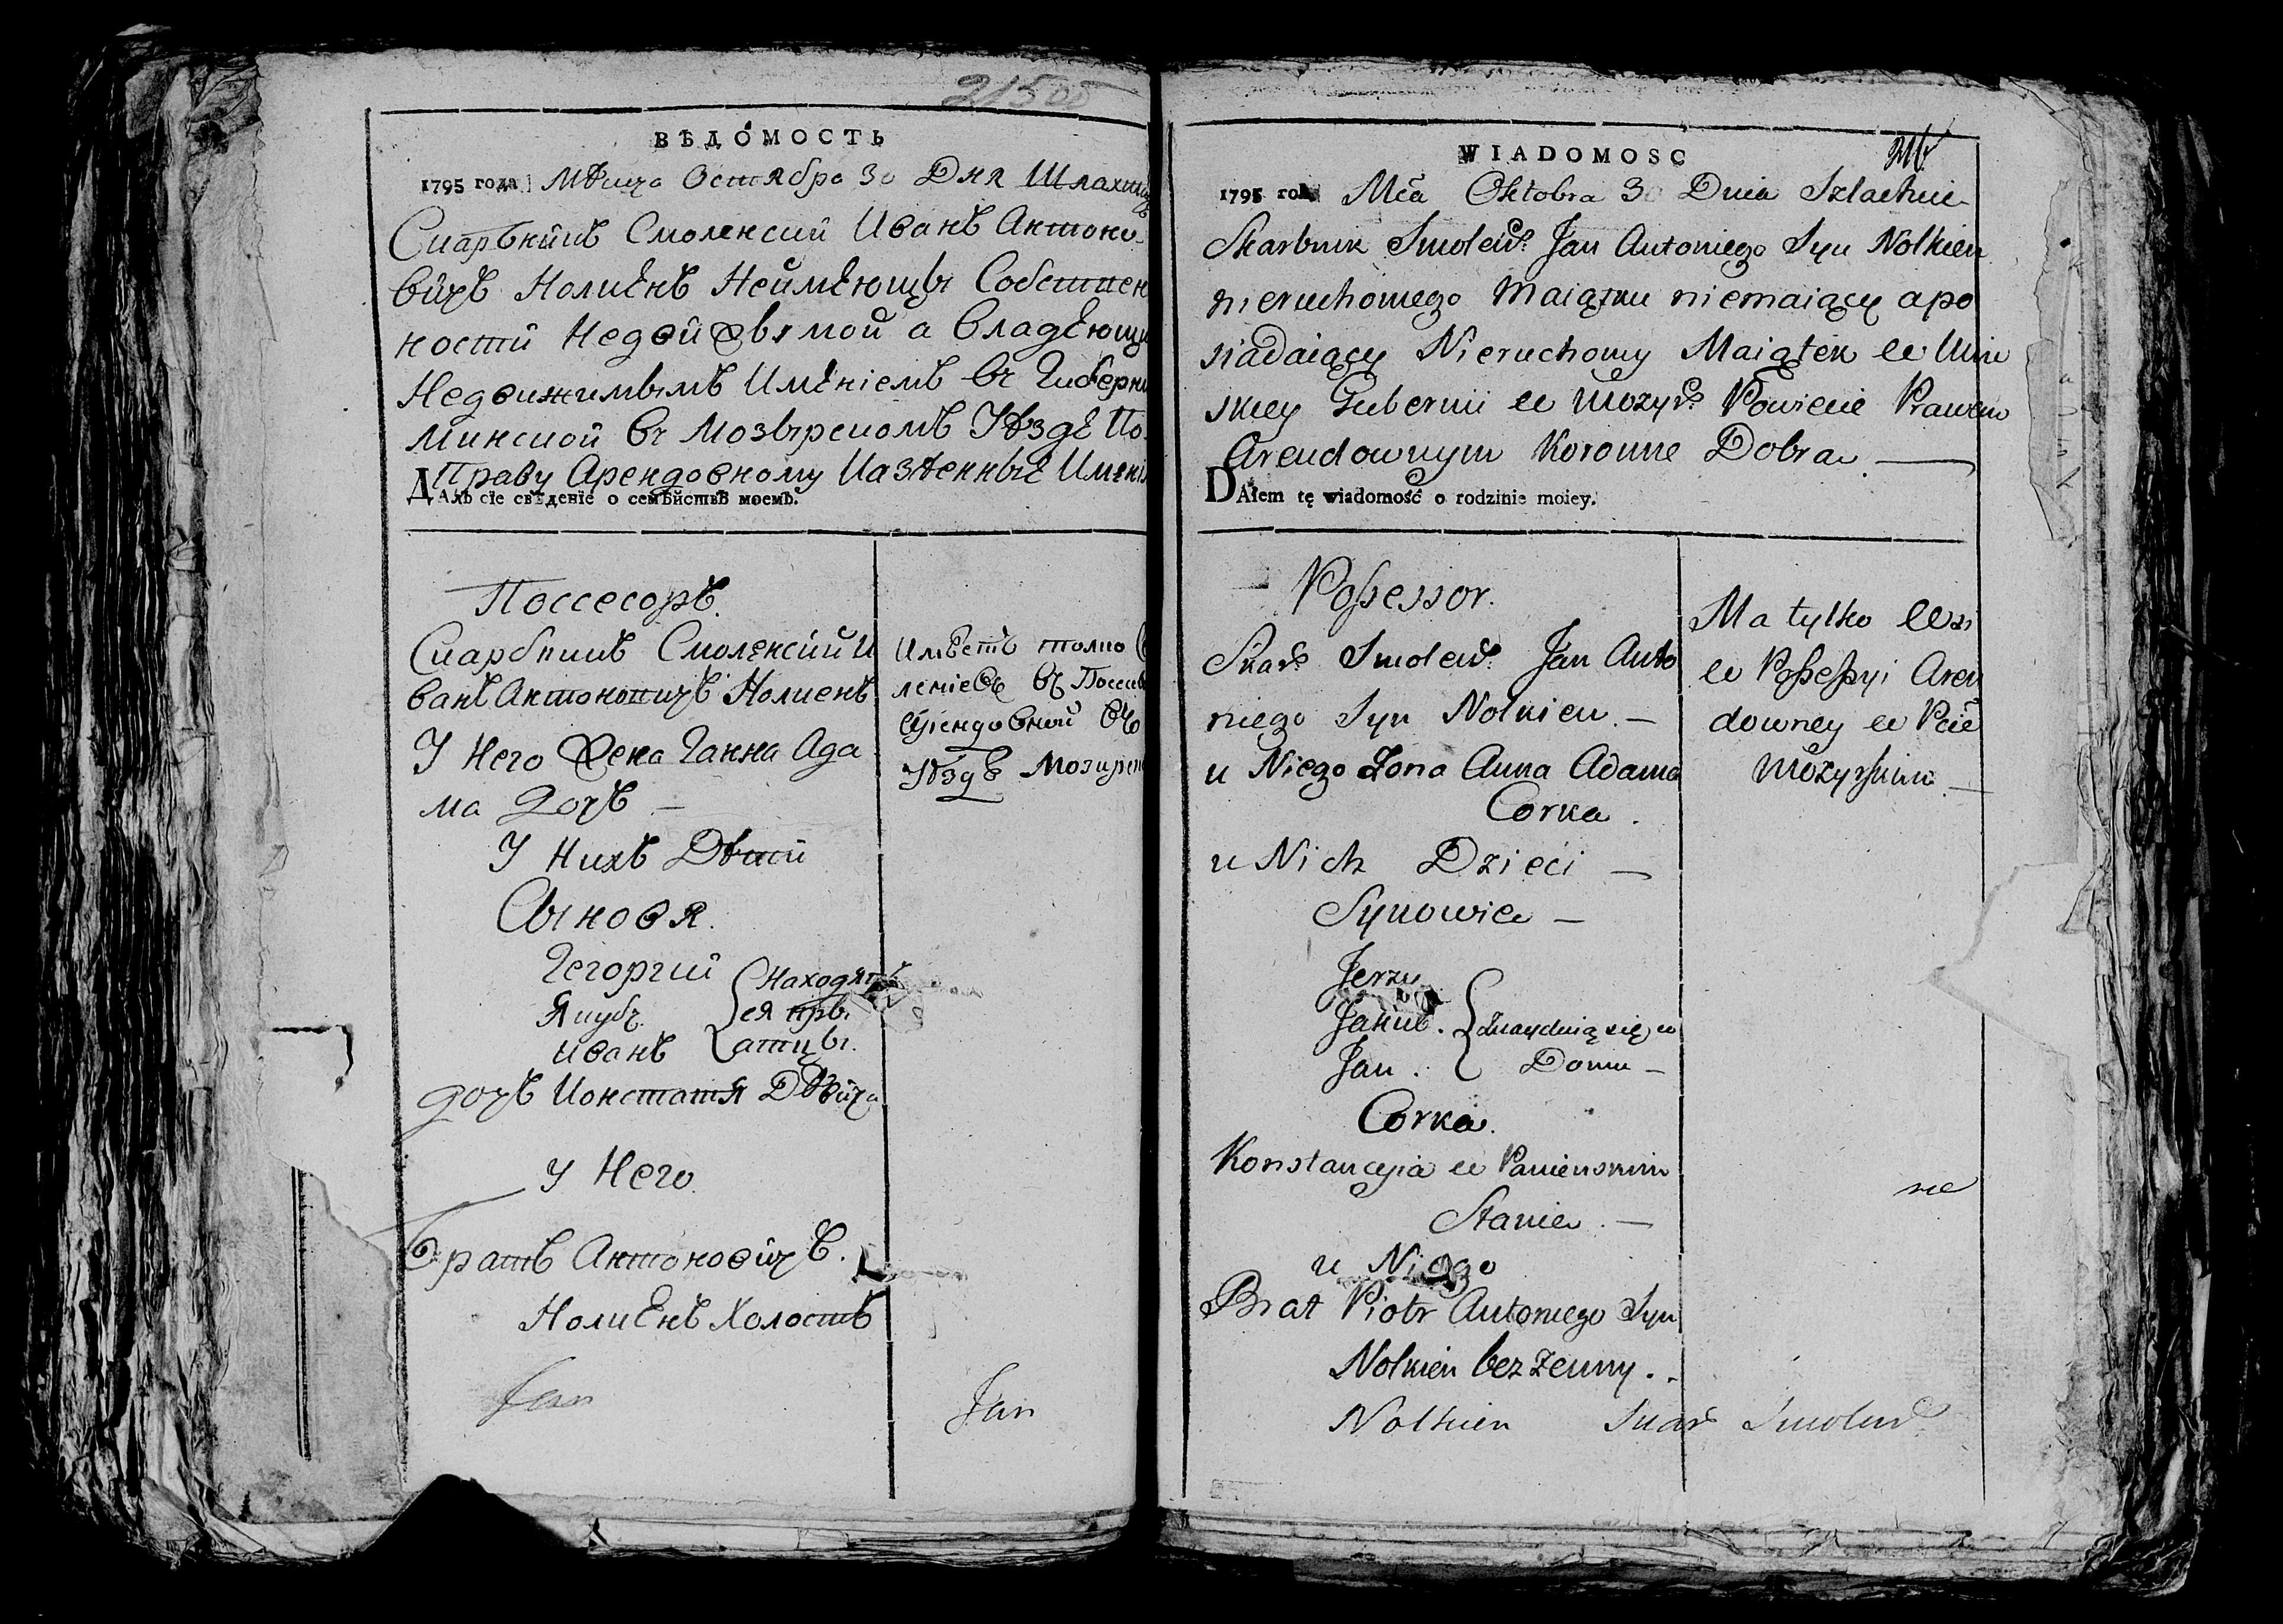 21500
ВѢДОМОСТЬ
1795 года Мѣсяца Остября 30 Дня Шляхтичъ
Скарбникъ Смоленский Иванъ Антоно-
вичъ Нолкенъ Неимеющы Собствен
ности Недвижвимой а Владеющы
Недвижимымъ Имениемъ въ Губерни
Минской въ Мозырскомъ Уѣзде По
Праву Арендовному Казѣнные Имени
ДАлъ сіе свѣденіе о семѣйствѣ моемъ.
Поссесоръ.
Скарбникъ Смоленский И
ванъ Антоновичъ Нолкенъ
У Него Жена Ганна Ада
ма Дочъ —
У Нихъ Дѣти
Сыновя.
Гегоргий
Якубъ
Иванъ
Находят
ся при
атцы.
дочъ Констатия Дѣвица
У Него
Братъ Антоновичъ.
Нолкенъ Холостъ
Jan
Имѣетъ толко
лениевъ въ Поссе
Арендовной въ
Уѣздѣ Мозирс
Jan
WIADOMOSC
1795 rok Mca Oktobra 30 Dnia Szlachcic
Skarbnik Smoleń: Jan Antoniego Syn Nolkien
nieruchomego Maiątku niemaiący a po
siadaiący Nieruchomy Maiątek w Min
skiey Gubernii w Mozyr: Powiecie Prawem
Arendownym Koronne Dobra —
DAłem tę wiadomość o rodzinie moiey.
Possessor.
Skar: Smoleń: Jan Anto
niego Syn Nolkien. —
u Niego Zona Anna Adama
Corka.
u Nich Dzieci —
Synowie —
Jerzy
Jakub.
Jan.
Znayduią się w
Domu —
Corka.
Konstancyia w Panienskim
Stanie. —
u Niego
Brat Piotr Antoniego Syn
Nolkien bezzenny..
Nolkien Skar Smoleń
Ma tylko Wsi
w Possessyi Aren
downey w Pcie
Mozyrskim. —